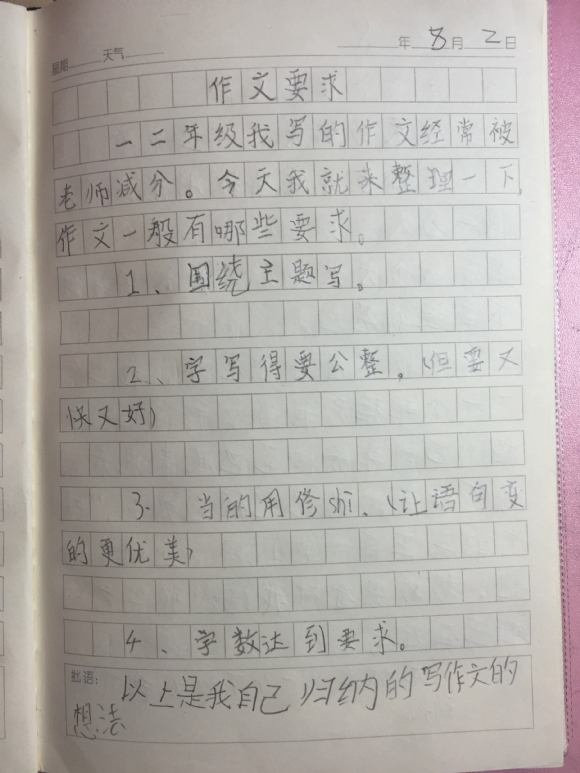 星期 天气 年 8月 2日
作文要求
一二年级我写的作文经常被
老师减分。今天我就来整理一下,
作文一般有哪些要求。
1、围绕主题写。
2、字写得要公整。(但要又
快又好)
3. 当的用修shi、(让语句变
的更优美)
4、字数达到要求。
批语: 以上是我自己归纳的写作文的
想法